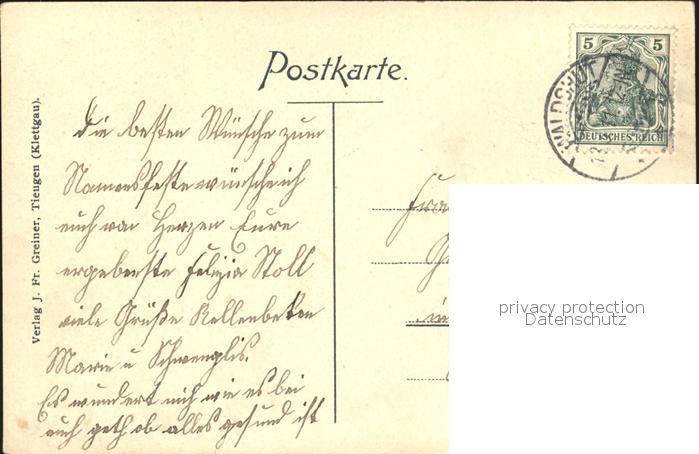 Postkarte.
5 5
DEUTSCHES REICH
WALDSHUT
Die besten Wünsche zum
Namensfeste wünsche ich
euch von Herzen Eure
ergebenste Felizia Stoll
viele Grüße Kellenbeken
Marie u Schwenglis.
Es wundert mich wie es bei
euch geth ob alles gesund ist
Verlag J. Fr. Greiner, Tieugen (Klettgau).
privacy protection
Datenschutz